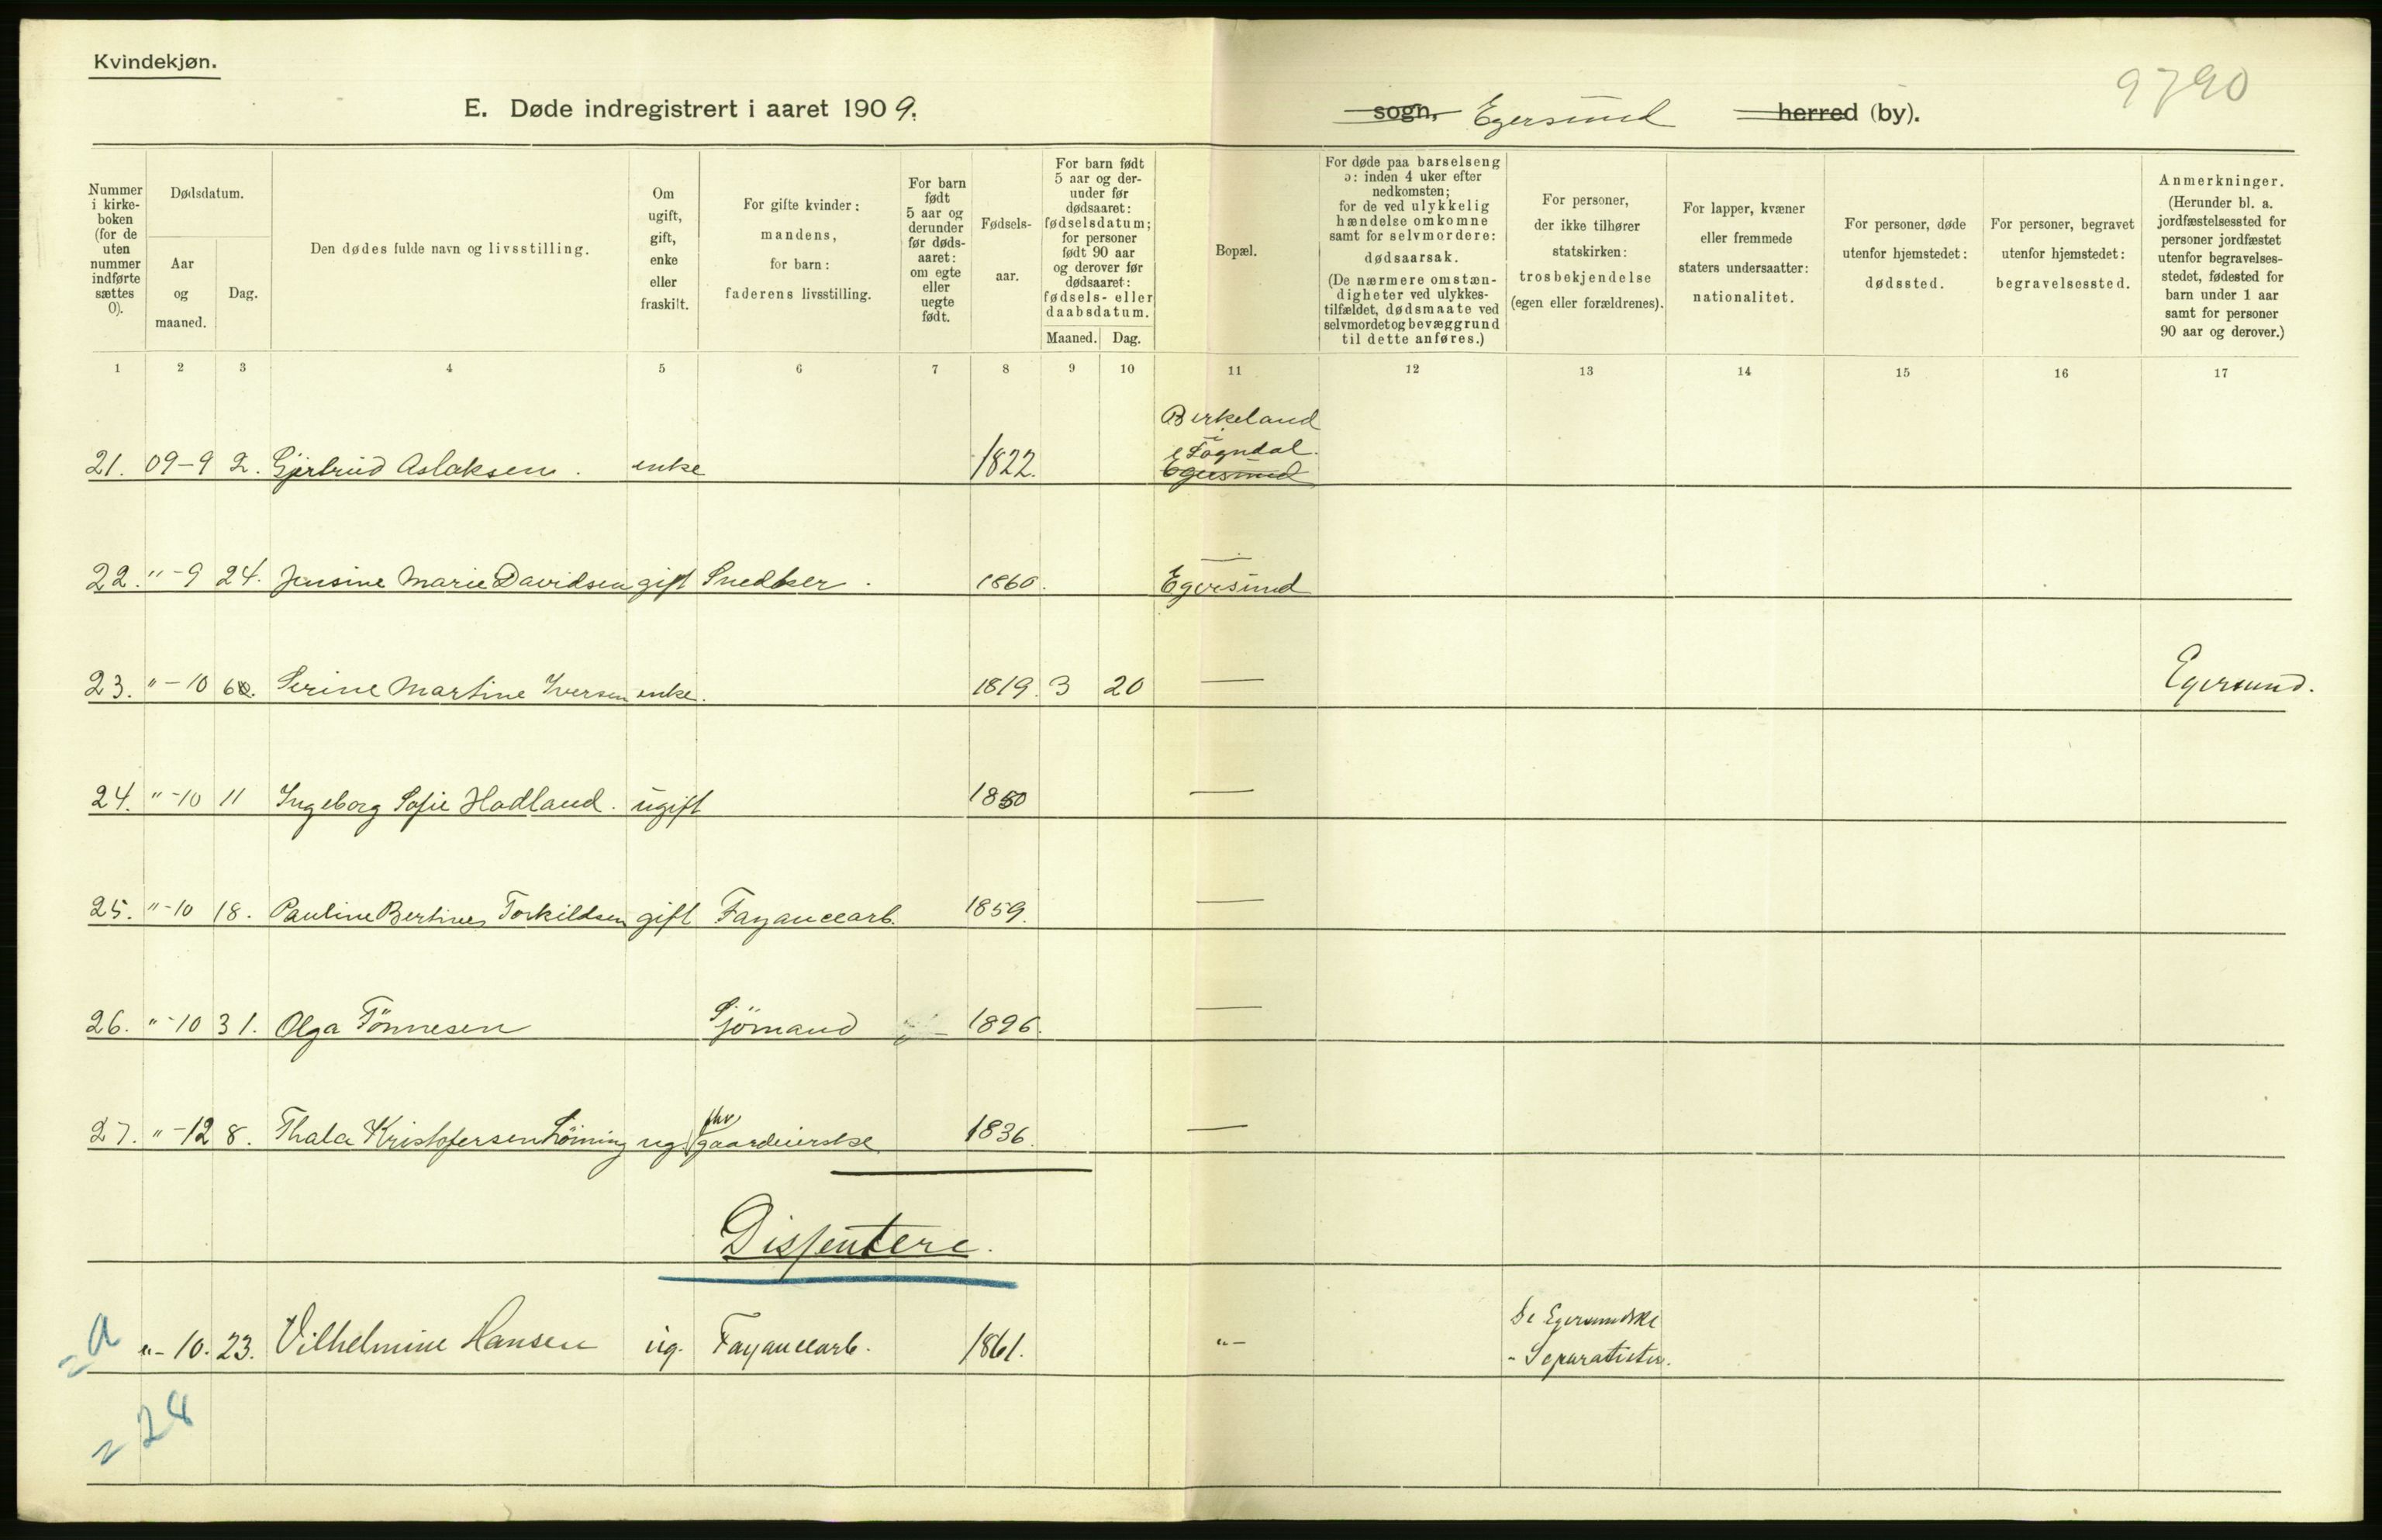 Kvindekjøn.
9790
E. Døde indregistrert i aaret 1909.
sogn, Egersund herred (by).
Nummer i kirkeboken (for de uten nummer indførte sættes 0).
Dødsdatum.
Aar og maaned.
Dag.
Den dødes fulde navn og livsstilling.
Om ugift, gift, enke eller fraskilt.
For gifte kvinder: mandens, for barn: faderens livsstilling.
For barn født 5 aar og derunder før dødsaaret: om egte eller uegte født.
Fødselsaar.
For barn født 5 aar og derunder før dødsaaret: fødselsdatum; for personer født 90 aar og derover før dødsaaret: fødsels- eller daabsdatum.
Maaned. Dag.
Bopæl.
For døde paa barselseng ɔ: inden 4 uker efter nedkomsten; for de ved ulykkelig hændelse omkomne samt for selvmordere: dødsaarsak. (De nærmere omstændigheter ved ulykkestilfældet, dødsmaate ved selvmordet og bevæggrund til dette anføres.)
For personer, der ikke tilhører statskirken: trosbekjendelse (egen eller forældrenes).
For lapper, kvæner eller fremmede staters undersaatter: nationalitet.
For personer, døde utenfor hjemstedet: dødssted.
For personer, begravet utenfor hjemstedet: begravelsessted.
Anmerkninger. (Herunder bl. a. jordfæstelsessted for personer jordfæstet utenfor begravelsesstedet, fødested for barn under 1 aar samt for personer 90 aar og derover.)
1 2 3 4 5 6 7 8 9 10 11 12 13 14 15 16 17
Birkeland
i Sogndal.
21. 09-9 2. Gjertrud Aslaksen. enke 1822. Egersund
22. "-9 24. Jensine Marie Davidsen gift Snedker. 1860. Egersund
23. "-10 6. Serine Martine Iversen enke. 1819. 3 20 — Egersund.
24. "-10 11 Ingeborg Sofie Hadland. ugift 1850 —
25. "-10 18. Pauline Bertine Torkildsen gift Fayancearb. 1859. —
26. "-10 31. Olga Tönnesen Sjömand 1896. —
27. "-12 8. Thala Kristofersen ug. fhv gaardeierske 1836. —
Dissentere.
a "- 10. 23. Vilhelmine Hansen ug. Fayancearb. 1861. "- De Egersundske
- Separatister.
= 28